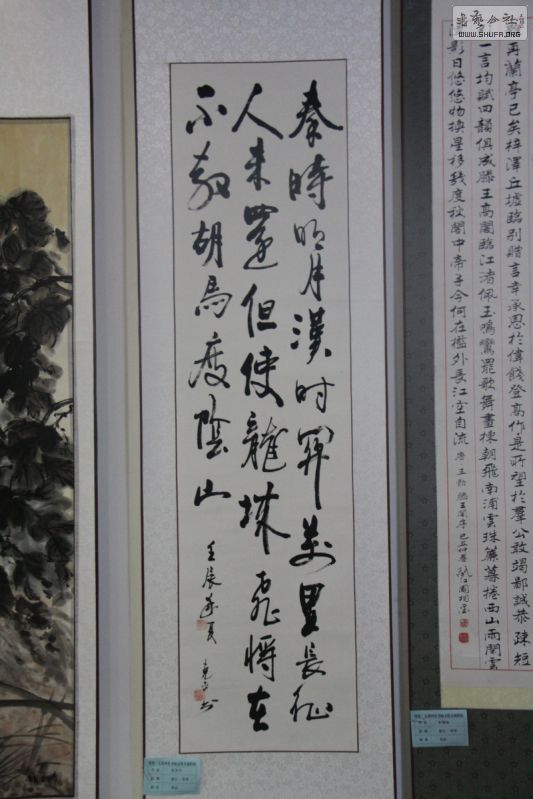 书法公社
WWW.SHUFA.ORG
再蘭亭已矣梓澤丘墟臨別贈言幸承恩於偉餞登高作是所望於羣公敢竭鄙誠恭疎短
一言均賦四韻俱成滕王高閣臨江渚佩玉鳴鸞罷歌舞畫棟朝飛南浦雲珠簾暮捲西山雨閑雲
影日悠悠物換星移幾度秋閣中帝子今何在檻外長江空自流 唐 王勃 滕王閣序 己丑仲春
秦時明月漢时関萬里長征
人未還但使龍城飛將在
不教胡馬度陰山 壬辰孟夏